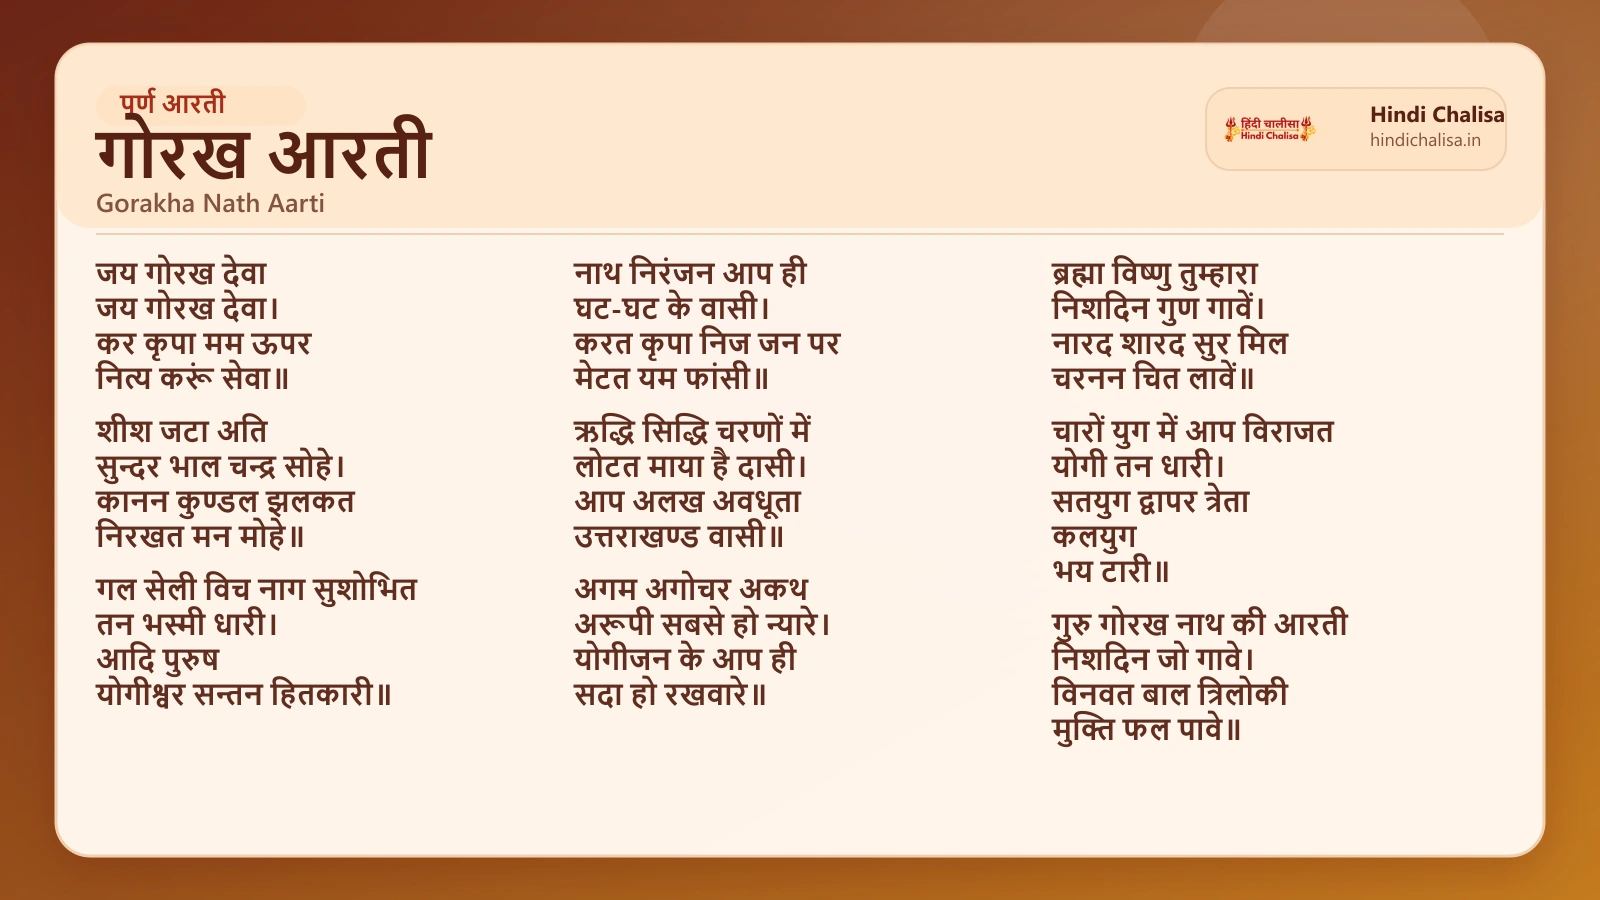 पूर्ण आरती
गोरख आरती
Gorakha Nath Aarti
हिंदी चालीसा
Hindi Chalisa
Hindi Chalisa
hindichalisa.in
जय गोरख देवा
जय गोरख देवा।
कर कृपा मम ऊपर
नित्य करूं सेवा॥
शीश जटा अति
सुन्दर भाल चन्द्र सोहे।
कानन कुण्डल झलकत
निरखत मन मोहे॥
गल सेली विच नाग सुशोभित
तन भस्मी धारी।
आदि पुरुष
योगीश्वर सन्तन हितकारी॥
नाथ निरंजन आप ही
घट-घट के वासी।
करत कृपा निज जन पर
मेटत यम फांसी॥
ऋद्धि सिद्धि चरणों में
लोटत माया है दासी।
आप अलख अवधूता
उत्तराखण्ड वासी॥
अगम अगोचर अकथ
अरूपी सबसे हो न्यारे।
योगीजन के आप ही
सदा हो रखवारे॥
ब्रह्मा विष्णु तुम्हारा
निशदिन गुण गावें।
नारद शारद सुर मिल
चरनन चित लावें॥
चारों युग में आप विराजत
योगी तन धारी।
सतयुग द्वापर त्रेता
कलयुग
भय टारी॥
गुरु गोरख नाथ की आरती
निशदिन जो गावे।
विनवत बाल त्रिलोकी
मुक्ति फल पावे॥